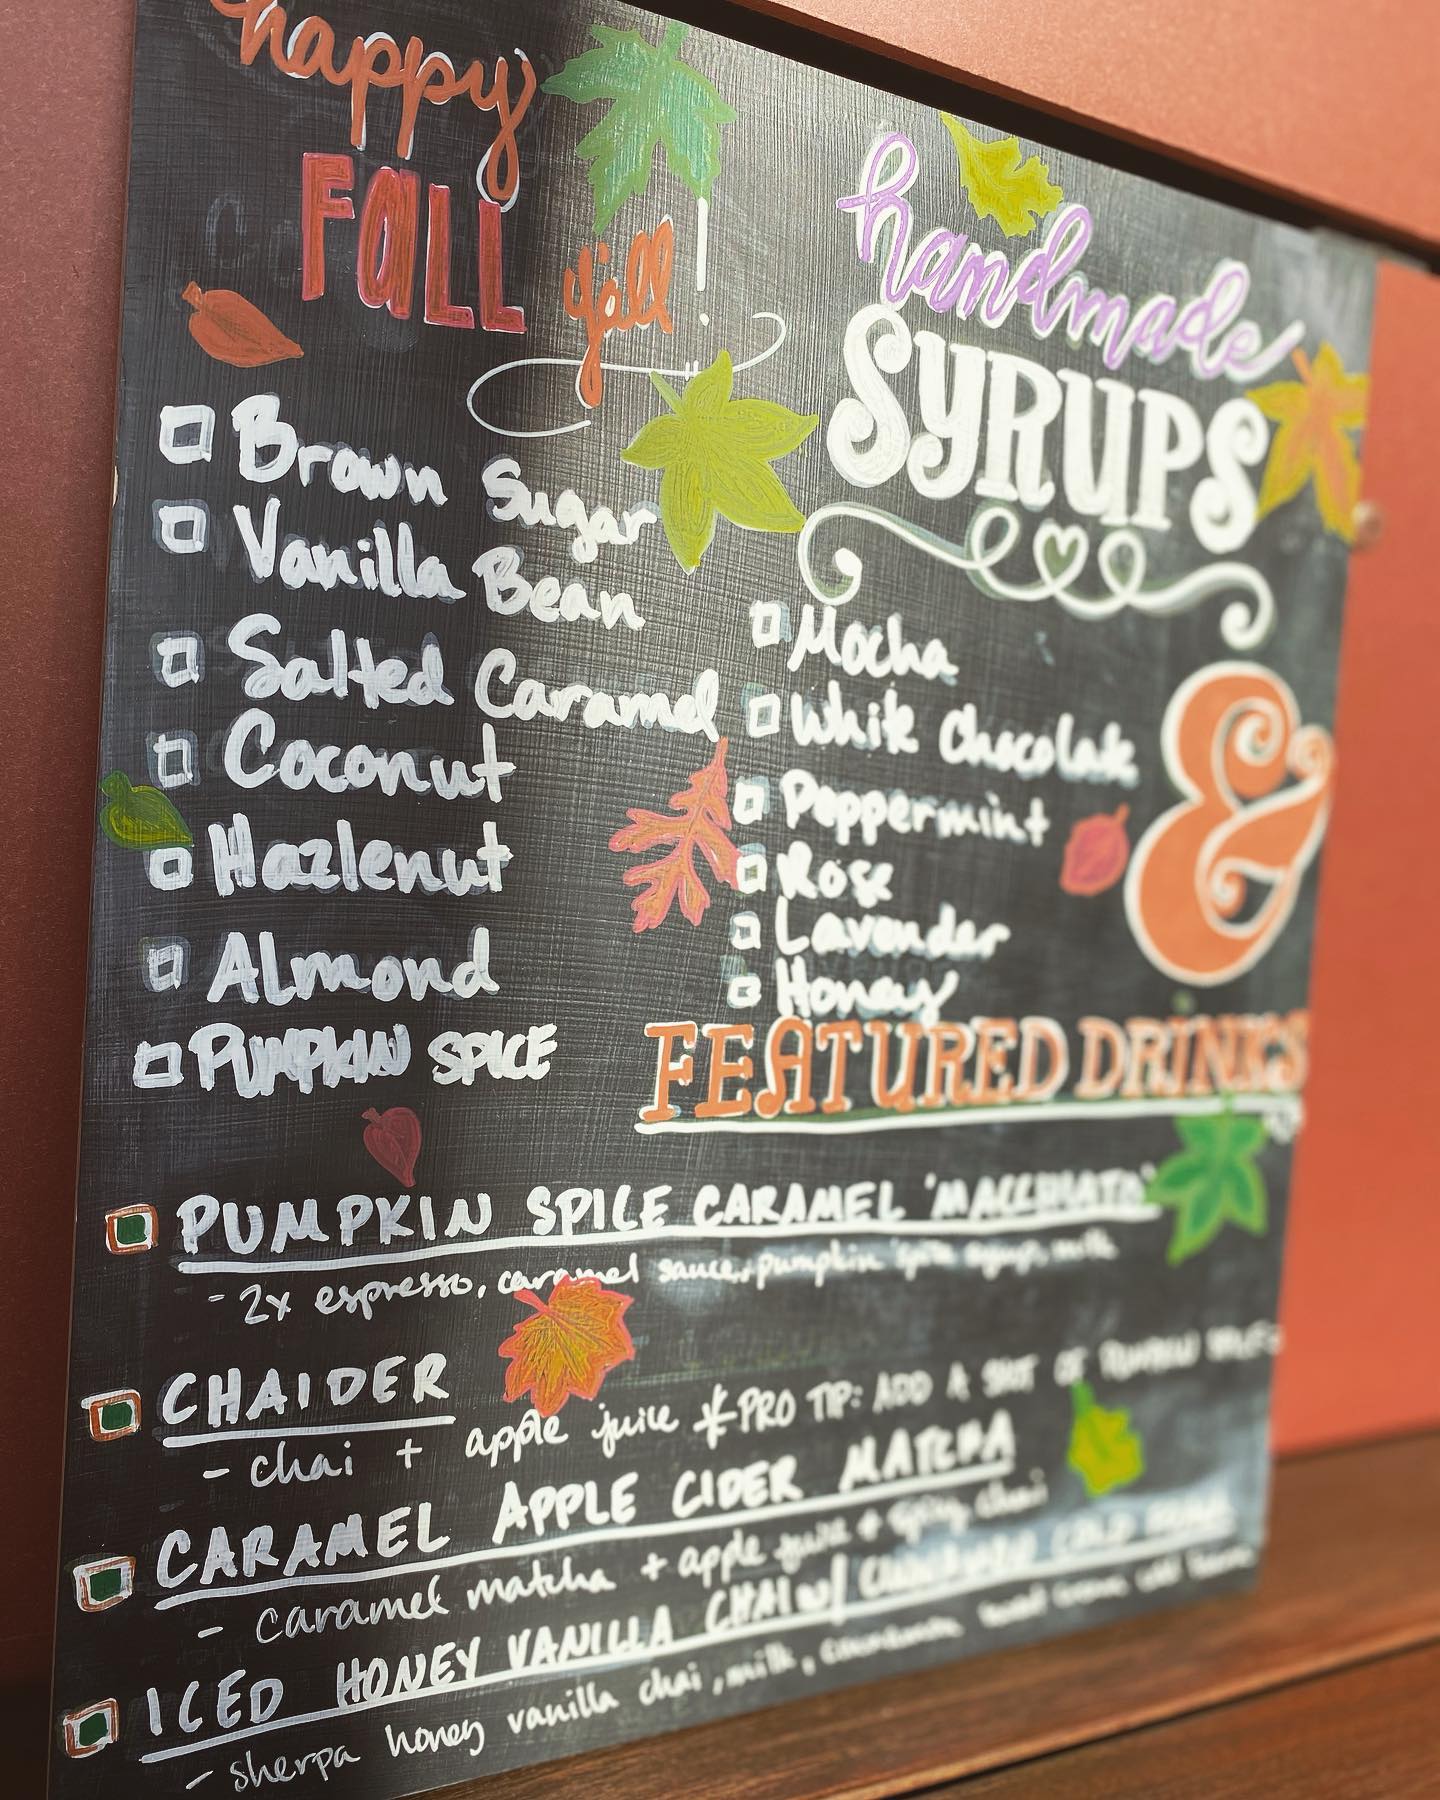 happy
FALL
y'all!
handmade
SYRUPS
Brown Sugar
Vanilla Bean
Salted Caramel
Coconut
Hazlenut
Almond
PUMPKIN SPICE
Mocha
White Chocolate
Peppermint
Rose
Lavender
Honey
&
FEATURED DRINKS
PUMPKIN SPICE CARAMEL 'MACCHIATO'
- 2x espresso, caramel sauce, pumpkin spice syrup, milk
CHAIDER
- chai + apple juice *PRO TIP: ADD A SHOT OF PUMPKIN
CARAMEL APPLE CIDER MATCHA
- caramel matcha + apple juice + spicy chai
ICED HONEY VANILLA CHAI W/ COLD FOAM
- sherpa honey vanilla chai, milk, cold foam